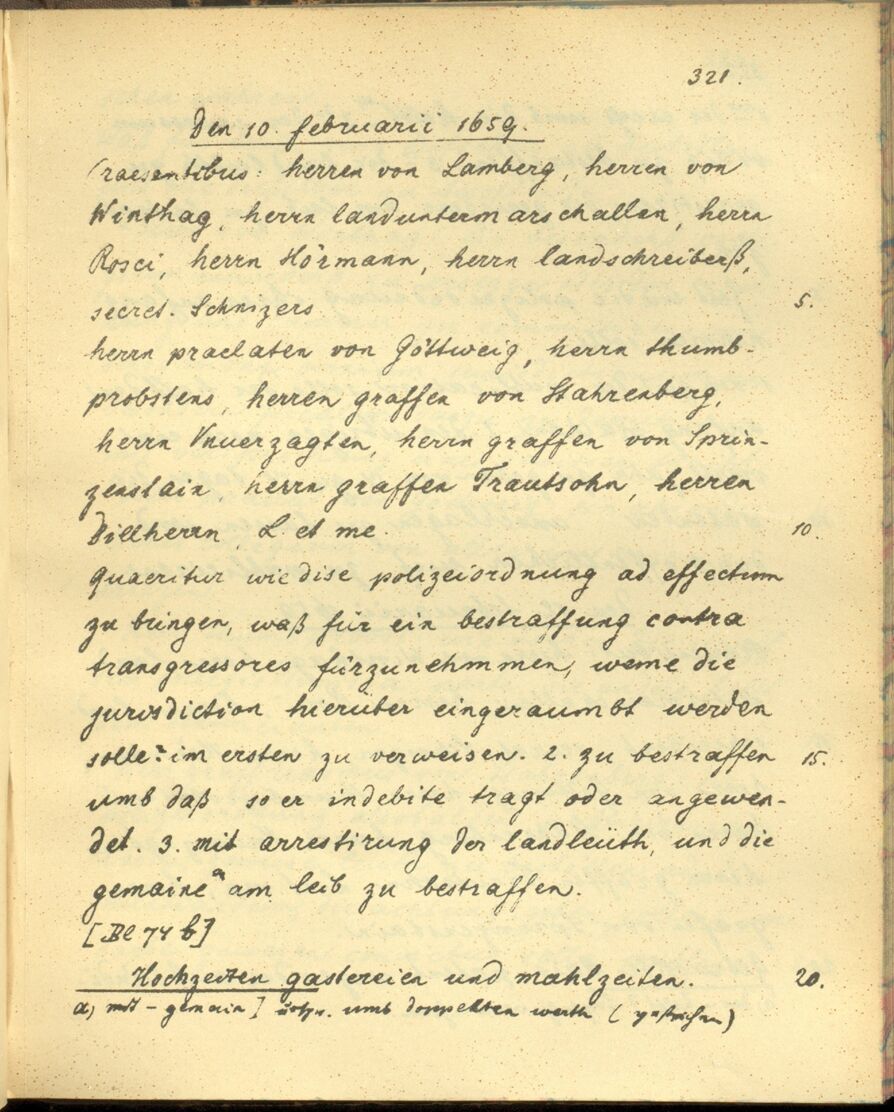 321.
Den 10. februarii 1659.
Praesentibus: herren von Lamberg, herren von
Winthag, herrn landuntermarschallen, herrn
Rosci, herrn Hörmann, herrn landschreiberß,
secret. Schnizers 5.
herrn praelaten von Göttweig, herrn thumb-
probstens, herren graffen von Stahrenberg,
herrn Vnuerzagten, herrn graffen von Sprin-
zenstain, herrn graffen Trautsohn, herren
Dillherrn, L. et me. 10.
Quaeritur wie dise polizeiordnung ad effectum
zu bringen, waß für ein bestraffung contra
transgressores fürzunehmmen, weme die
jurisdiction hierüber eingeraumbt werden
solle: im ersten zu verweisen. 2. zu bestraffen 15.
umb daß so er indebite tragt oder angewen-
det. 3. mit arrestirung der landleüth, und die
gemaine a am leib zu bestraffen.
[Bl 74 b]
Hochzeiten gastereien und mahlzeiten. 20.
a) mit - gemain] umb doppelten werth (gestrichen)